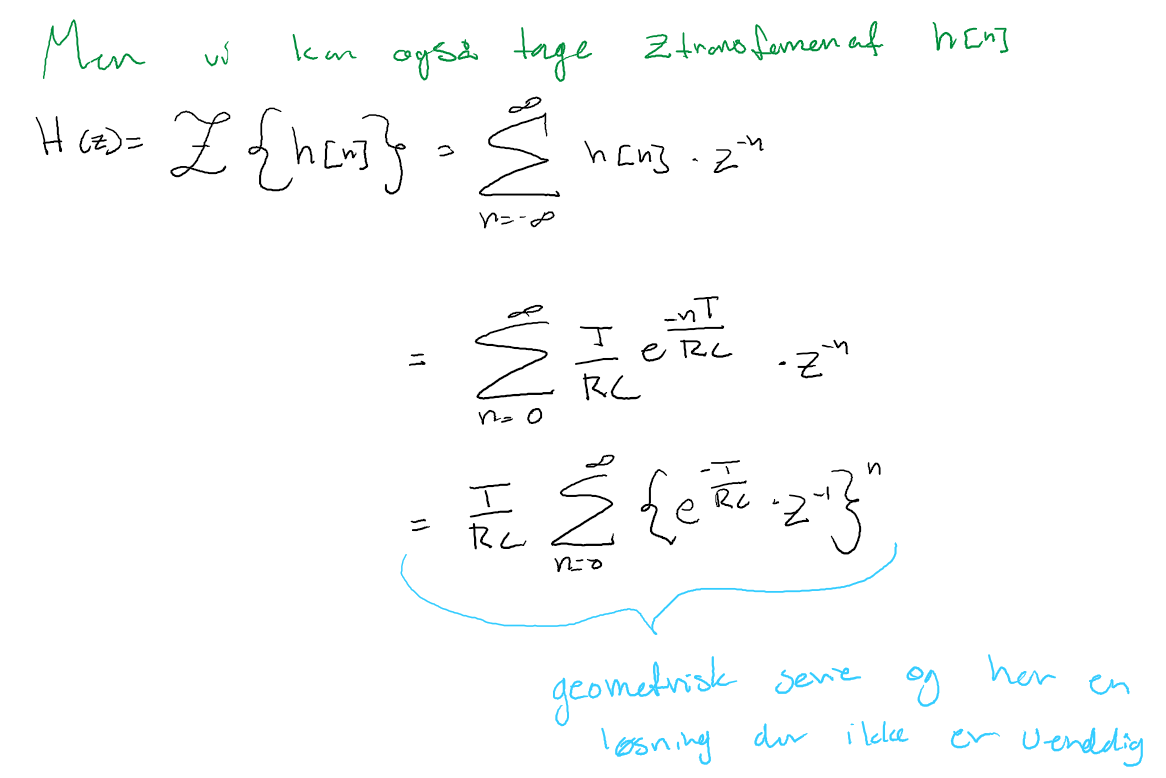 Men vi kan også tage Ztransformen af h[n]
H(z) = Z{h[n]} = ∑_{n=-∞}^{∞} h[n] · z^{-n}
= ∑_{n=0}^{∞} T/RC e^{-nT/RC} · z^{-n}
= T/RC ∑_{n=0}^{∞} {e^{-T/RC} · z^{-1}}^n
geometrisk serie og har en
løsning der ikke er uenddig